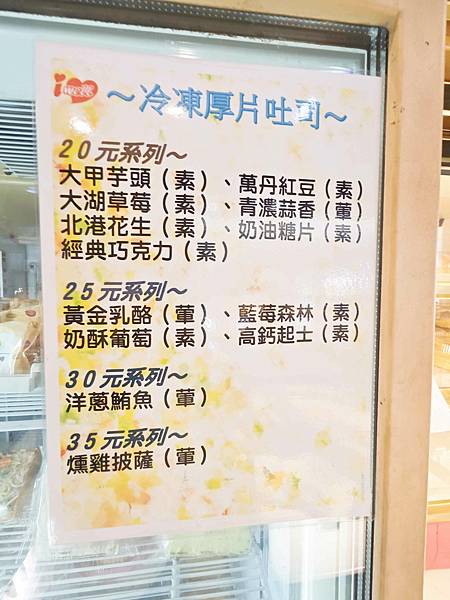 ～冷凍厚片吐司～
20元系列～
大甲芋頭（素）、萬丹紅豆（素）
大湖草莓（素）、青濃蒜香（葷）
北港花生（素）、奶油糖片（素）
經典巧克力（素）
25元系列～
黃金乳酪（葷）、藍莓森林（素）
奶酥葡萄（素）、高鈣起士（素）
30元系列～
洋蔥鮪魚（葷）
35元系列～
燻雞披薩（葷）